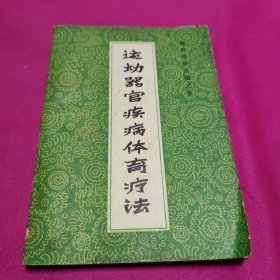 运动器官疾病体育疗法